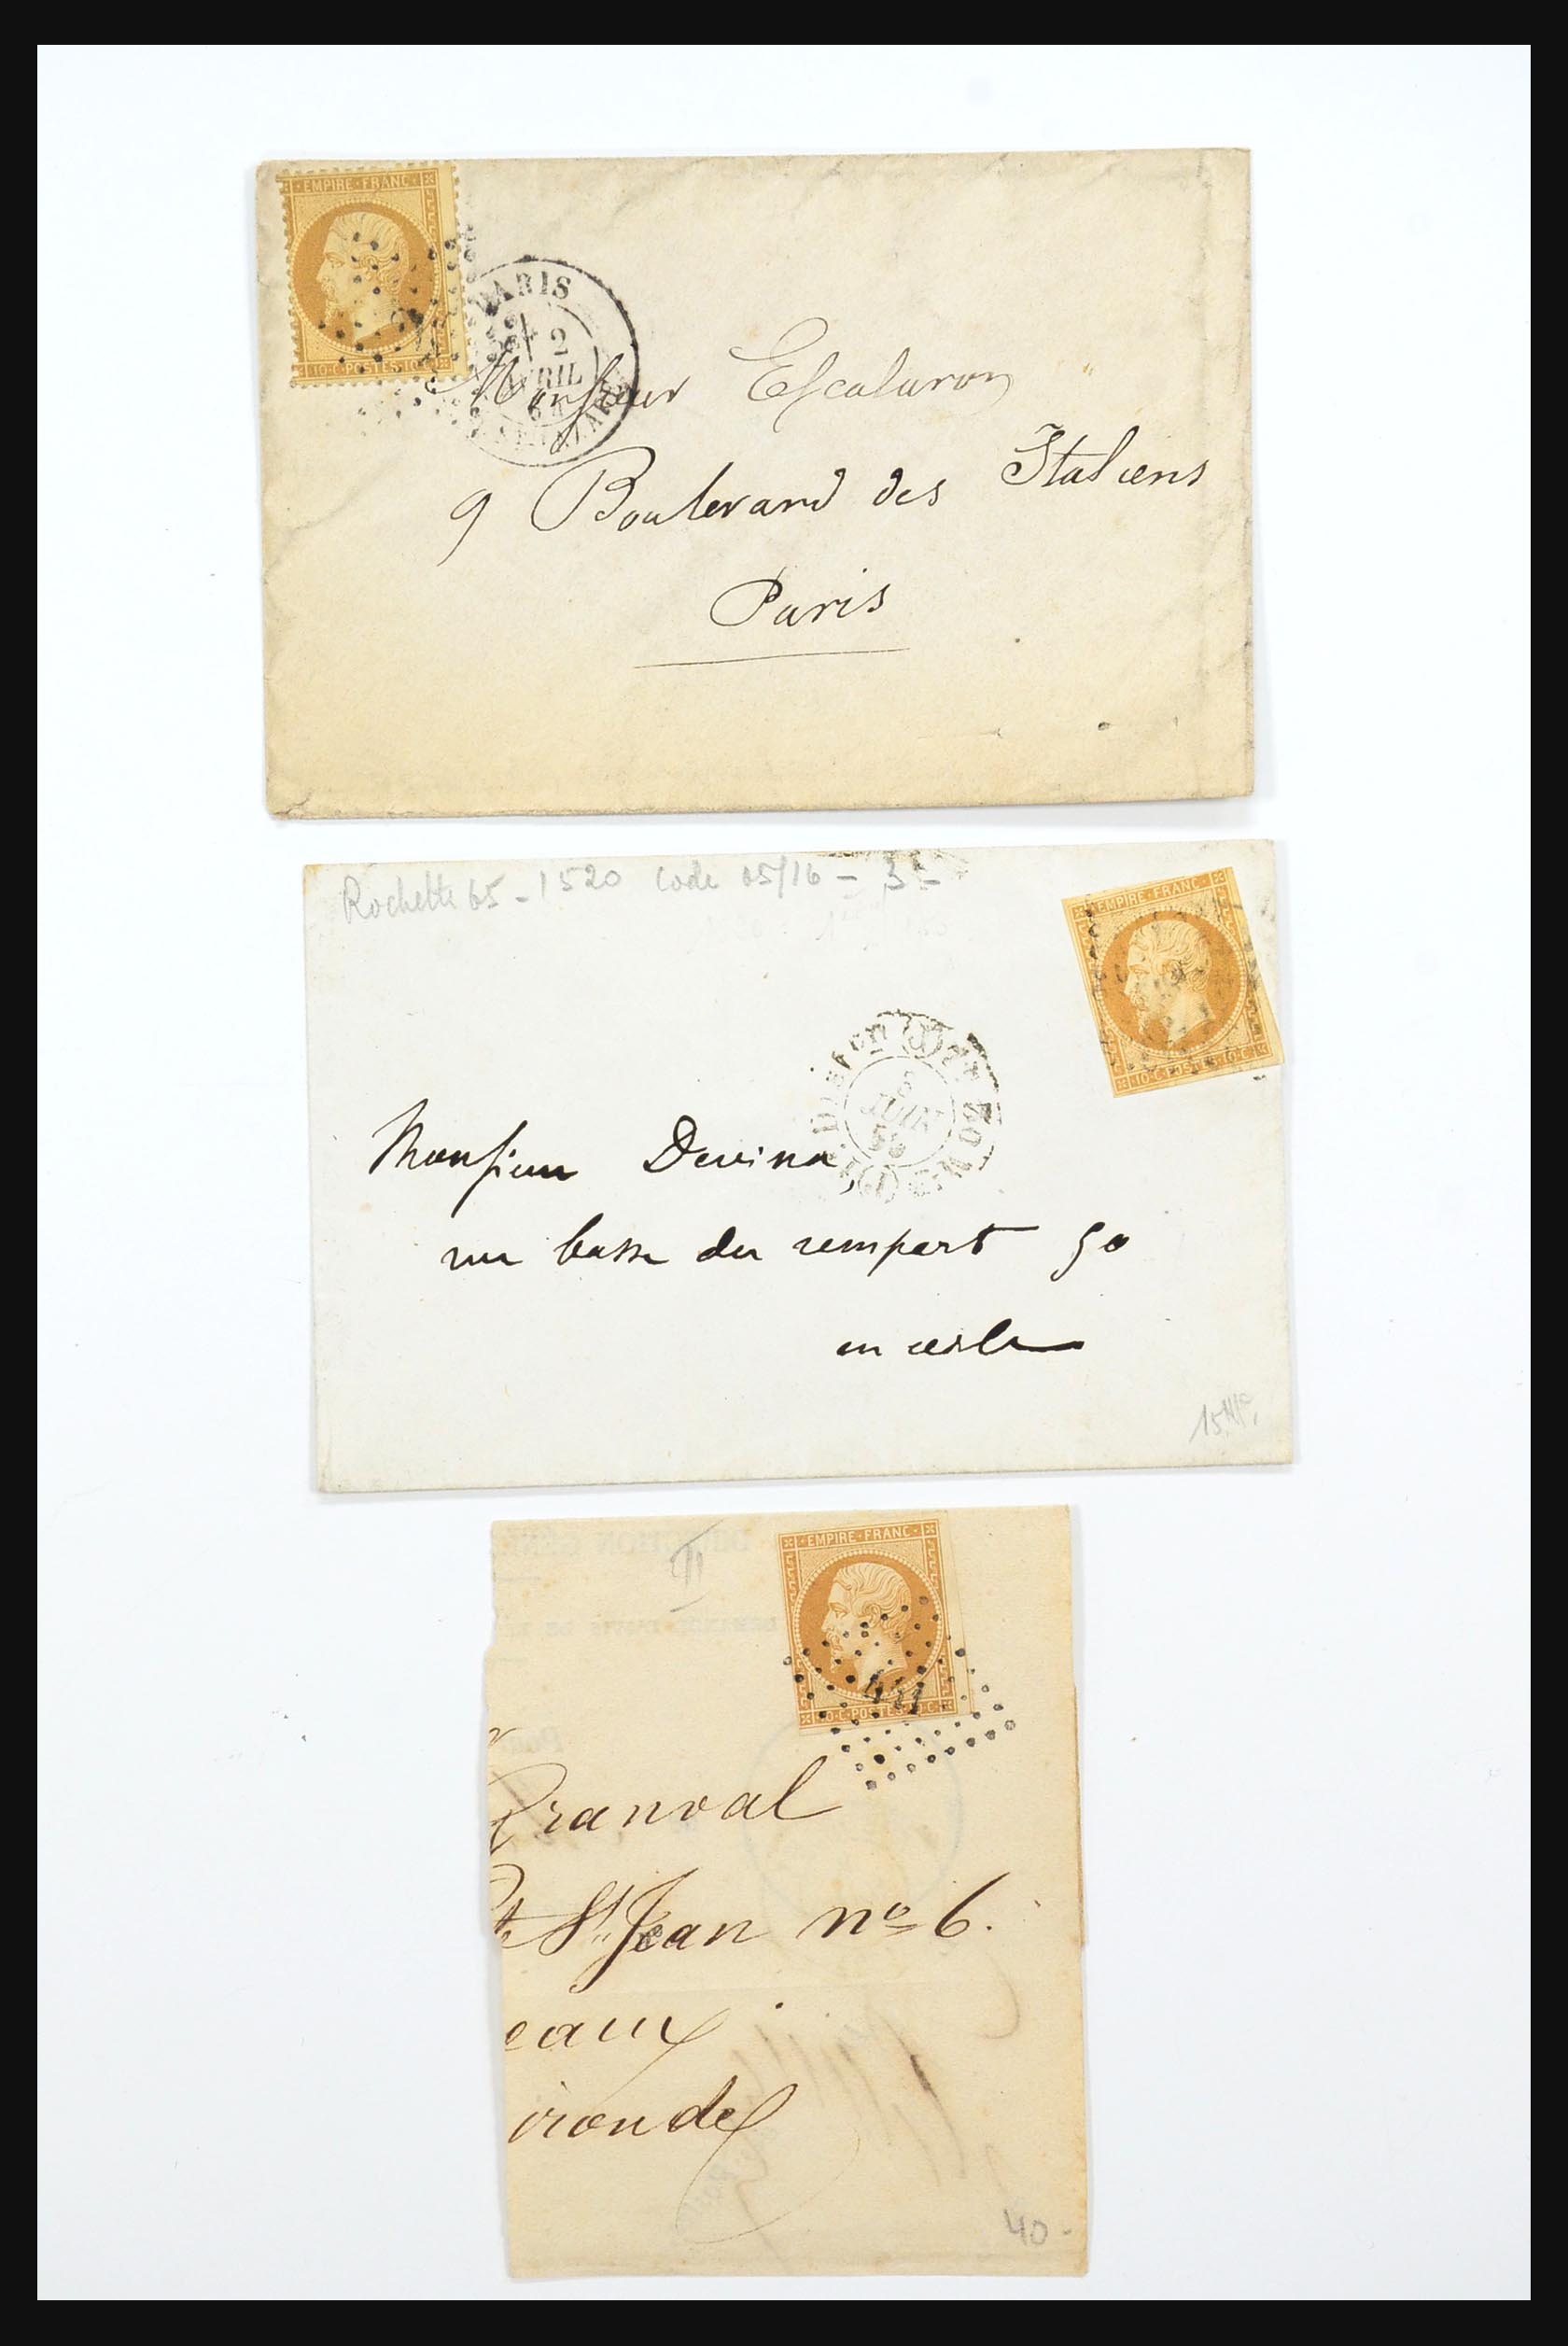 EMPIRE · FRANC
10 · C · POSTES · 10 · C
PARIS
2
AVRIL
64
Monsieur Escalaron
9 Boulevard des Italiens
Paris
Rochette 65 - 1520 code 05/16 - 3 -
EMPIRE · FRANC
10 · C · POSTES · 10 · C
8
JUIN
Monsieur Devina
rue basse du rempart 50
en ville
EMPIRE · FRANC
10 · C · POSTES · 10 · C
II
Granval
St Jean no 6.
eaux
ironde
40 -